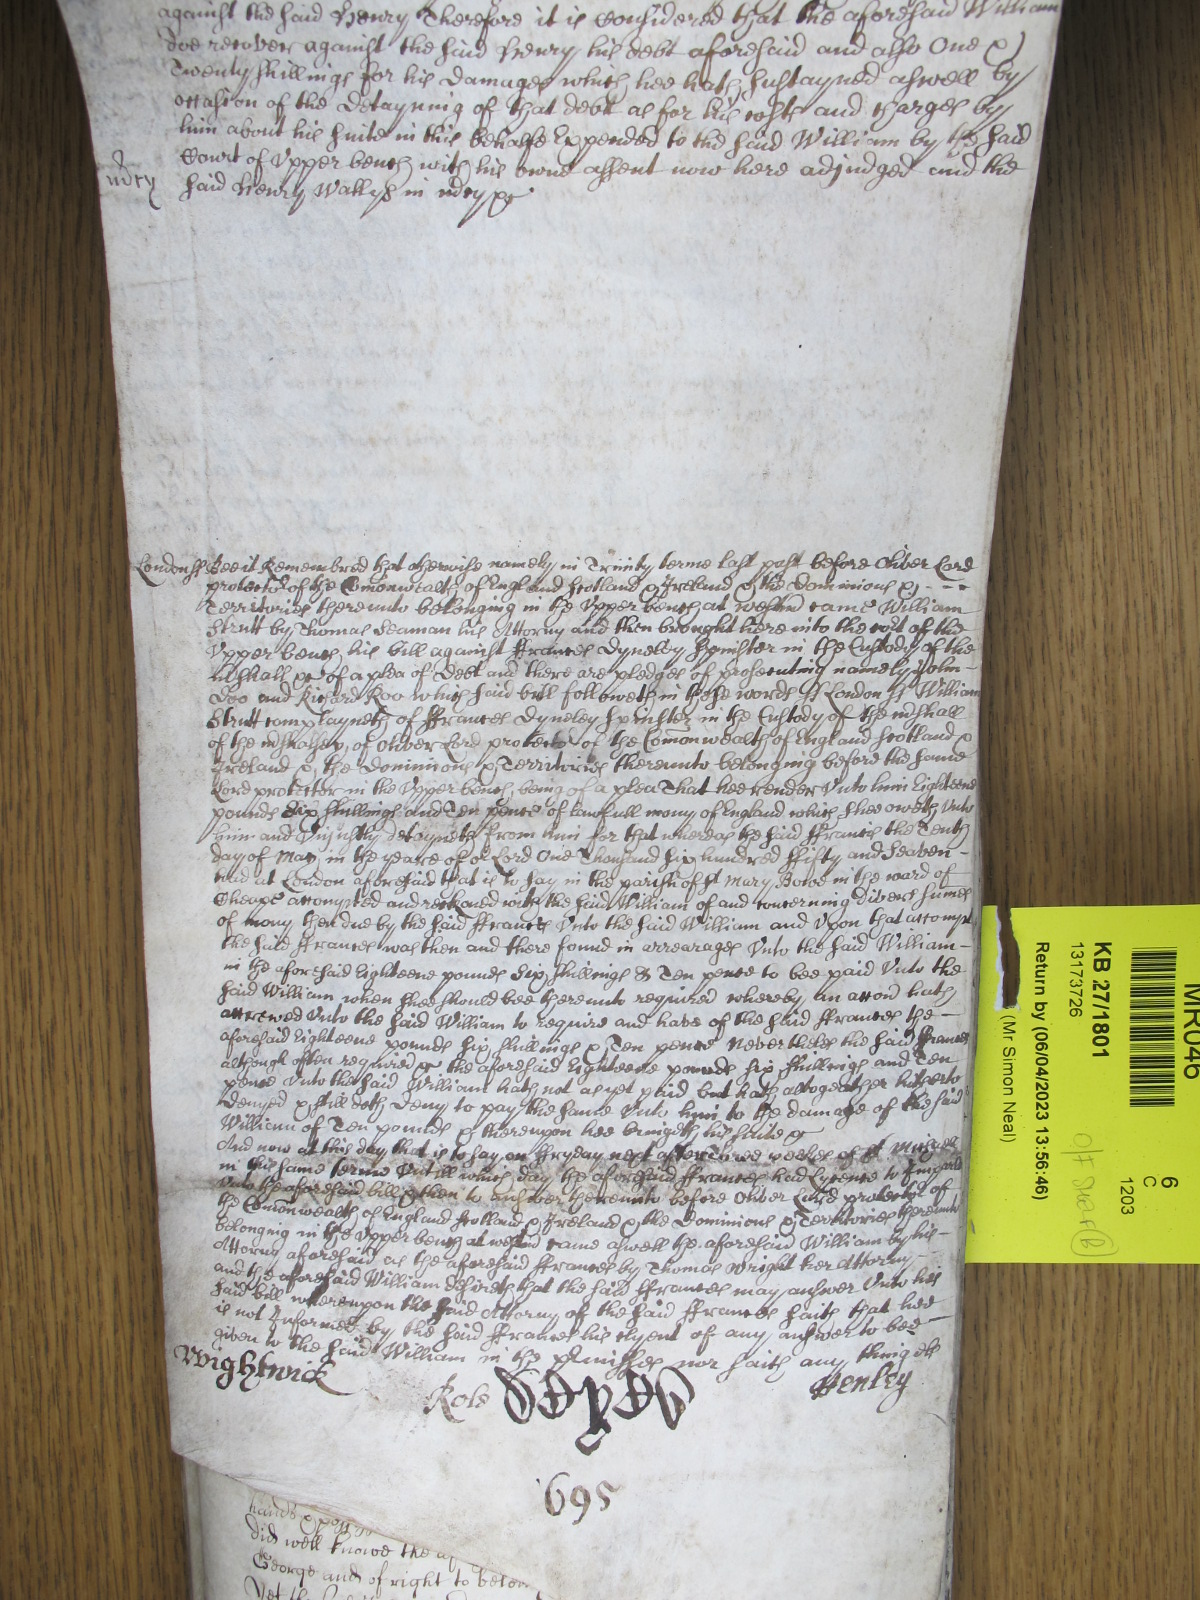 against the said Henry Therefore it is Considered that the aforesaid William
doe recover against the said Henry his debt aforesaid and also One &
Twenty shillings for his Damages which hee hath sustayned aswell by
occasion of the Detayning of that debt as for his costs and charges by
him about his suite in this behalfe Expended to the said William by the said
Court of Upper bench with his owne assent now here adjudged and the
mrcy said Henry Wallys in mrcy &c
London ss Bee it Remembred that otherwise namely in Trinity terme last past before Oliver Lord
protector of the Comonwealth of England Scotland & Ireland & the Dominions &
Territories thereunto belonging in the Upper bench at Westm came William
Strutt by Thomas Seaman his Attorny and then brought here into the cort of the
Upper bench his bill against ffrances Dyneley Spinster in the Custody of the
mshall &c of a plea of Debt and there are pledges of prosecuting namely John
Doo and Richard Roo which said bill followeth in these words ss London ss William
Strutt complayneth of ffrances Dyneley Spinster in the Custody of the mshall
of the mshalsey of Oliver Lord protector of the Comonwealth of England Scotland &
Ireland & the Dominions & Territories thereunto belonging before the same
Lord protector in the Upper bench being of a plea That hee render Unto him Eighteene
pounds Six shillings and Ten pence of lawfull mony of England which shee oweth Unto
him and Unjustly detayneth from him for that whereas the said ffrances the Tenth
day of May in the yeare of or Lord One Thousand six hundred ffifty and Seaven
was at London aforesaid that is to say in the parish of St Mary Bowe in the ward of
Cheape accompted and reckoned with the said William of and concerning divers sumes
of mony then due by the said ffrances Unto the said William and Upon that accompt
the said ffrances was then and there found in arrearages Unto the said William
in the aforesaid Eighteene pounds Six shillings & Ten pence to bee paid Unto the
said William when shee should bee thereunto required whereby an accon hath
accrewed Unto the said William to require and have of the said ffrances the
aforesaid Eighteene pounds six shillings & Ten pence Neverthelес the said ffrances
although often required &c the aforesaid Eighteene pounds six shillings and Ten
pence Unto the said William hath not as yet paid but hath altogeather hitherto
denyed & still doth Deny to pay the same Unto him to the damage of the said
William of Ten pounds & thereupon hee bringeth his suite &c
And now at this day that is to say on ffryday next after three weekes of St Michaell
in this same terme Untill which day the aforesaid ffrances had Lycence to Imparle
Unto the aforesaid bill & then to answer thereunto before Oliver Lord protector of
the Comonwealth of England Scotland & Ireland & the Dominions & Territories thereunto
belonging in the Upper bench at Westm came aswell the aforesaid William by his
Attorny aforesaid as the aforesaid ffrances by Thomas Wright her Attorny
and the aforesaid William desireth that the said ffrances may answer Unto his
said bill whereupon the said Attorny of the said ffrances saith that hee
is not Informed by the said ffrances his clyent of any answer to bee
given to the said William in the pmisses nor saith any thing els
Wightwick Rols Henley
695
hands
did well knowe the
George and of right to
Yet the
MR046
6
C
1203
KB 27/1801
13173726
Return by (06/04/2023 13:56:46)
(Mr Simon Neal)